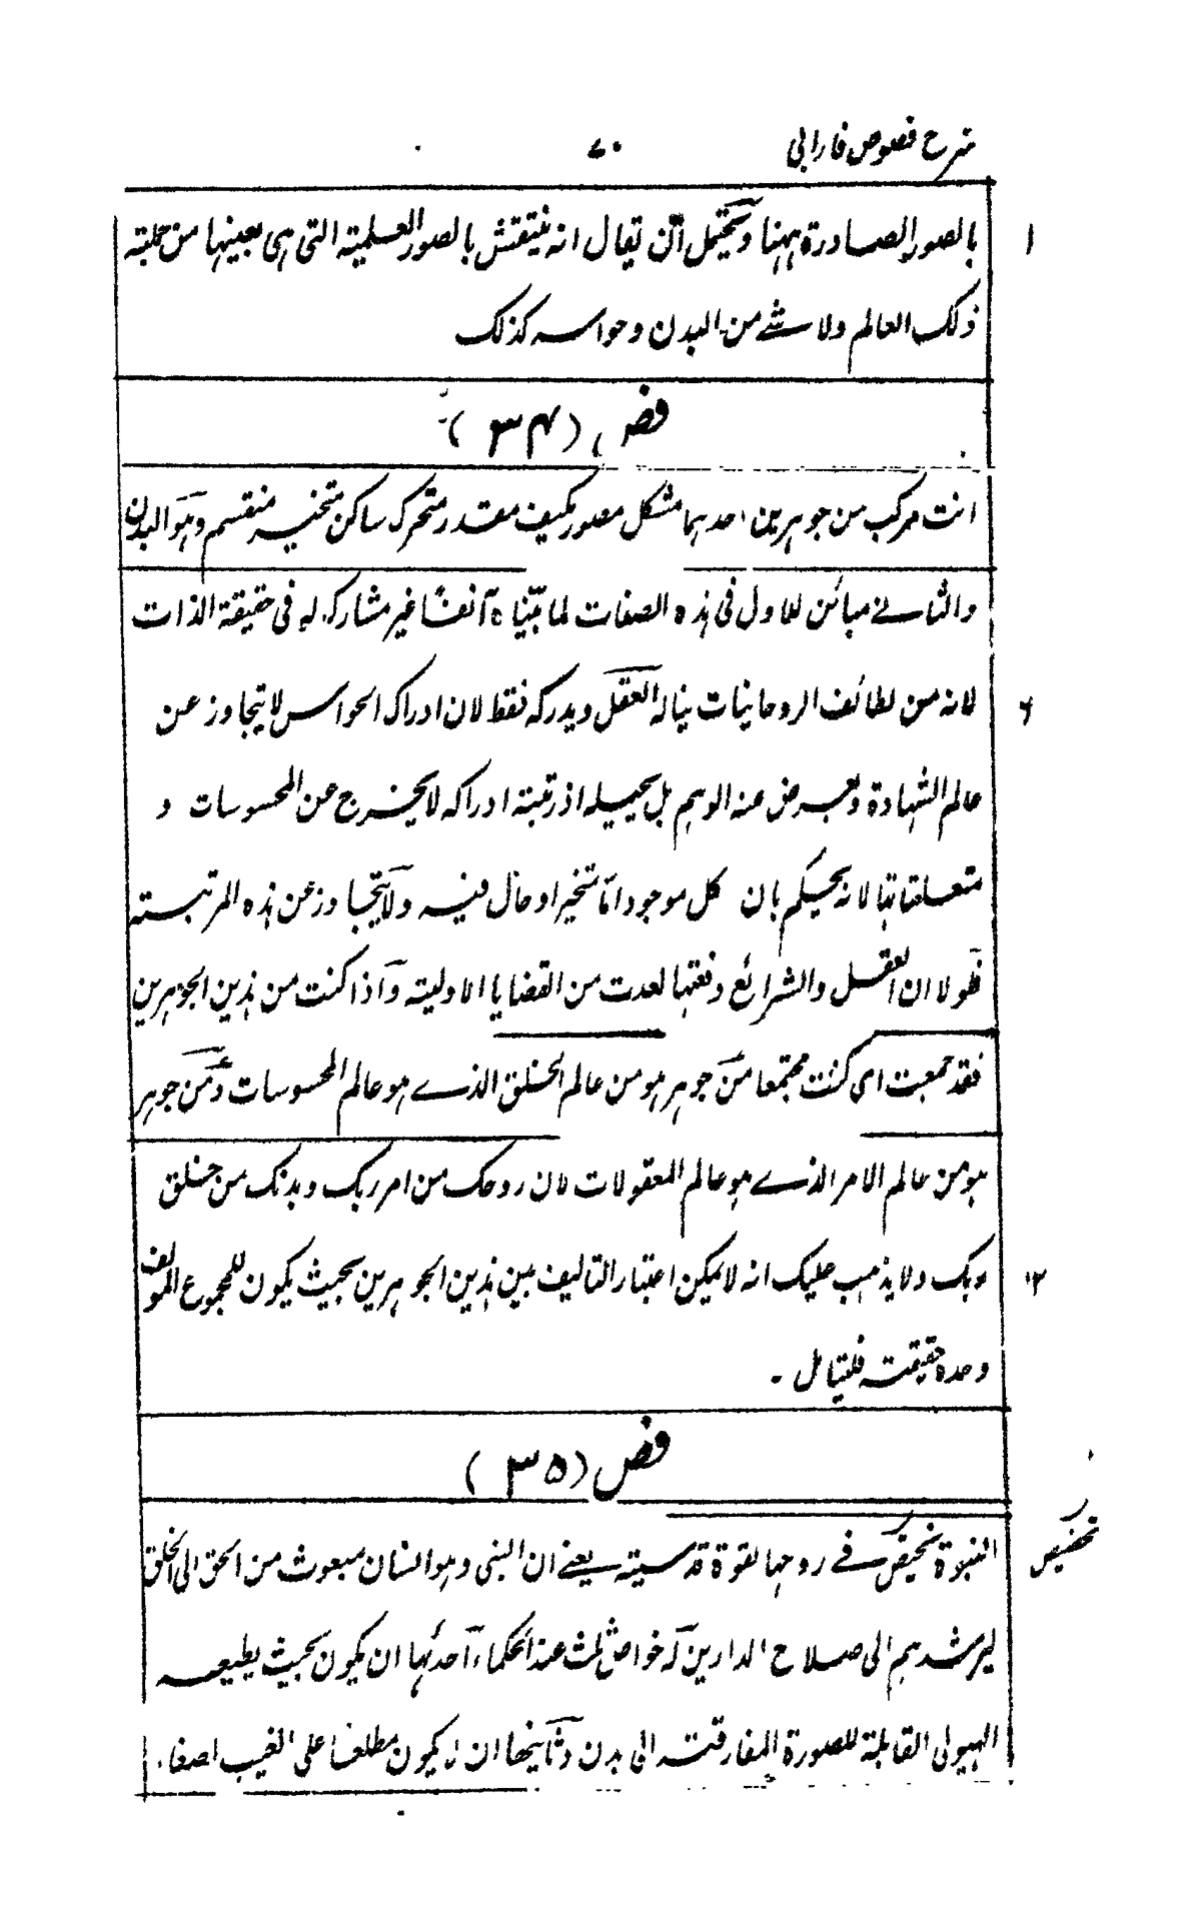 شرح فصوص فارابی ٧٠
١ بالصور الصادرة ههنا ويحتمل ان يقال انه ينتقش بالصور العلمية التى هى بعينها من جملة
ذلك العالم ولا شئ من البدن وحواسه كذلك
فص (٣٤)
انت مركب من جوهرين احدهما مشكل مصور مكيف مقدر متحرك ساكن متحيز منقسم وهو البدن
والثانى مبائن للاول فى هذه الصفات لما بيناه آنفا غير مشارك له فى حقيقة الذات
٦ لانه من لطائف الروحانيات يناله العقل ويدركه فقط لان ادراك الحواس لا يتجاوز عن
عالم الشهادة ويعرض عنه الوهم بل يحيله اذ رتبة ادراكه لا يخرج عن المحسوسات و
متعلقاتها لانه يحكم بان كل موجود اما متحيز او حال فيه ولا يتجاوز عن هذه المرتبة
فلولا ان العقل والشرائع دفعتها لعدت من القضايا الاولية واذا كنت من هذين الجوهرين
فقد جمعت اى كنت مجتمعا من جوهر هو من عالم الخلق الذى هو عالم المحسوسات ومن جوهر
هو من عالم الامر الذى هو عالم المعقولات لان روحك من امر ربك وبدنك من خلق
١٢ ربك ولا يذهب عليك انه لا يمكن اعتبار التاليف بين هذين الجوهرين بحيث يكون للمجموع المولف
وحدة حقيقته فليتامل -
فص (٣٥)
النبوة تختص فى روحها بقوة قدسية يعنى ان النبى وهو انسان مبعوث من الحق الى الخلق
تختص
ليرشدهم الى صلاح الدارين له خواص ثلث عند الحكماء احدها ان يكون بحيث يطيعه
الهيولى القابلة للصورة المفارقة الى بدن وثانيها ان يكون مطلعا على الغيب لصفاء